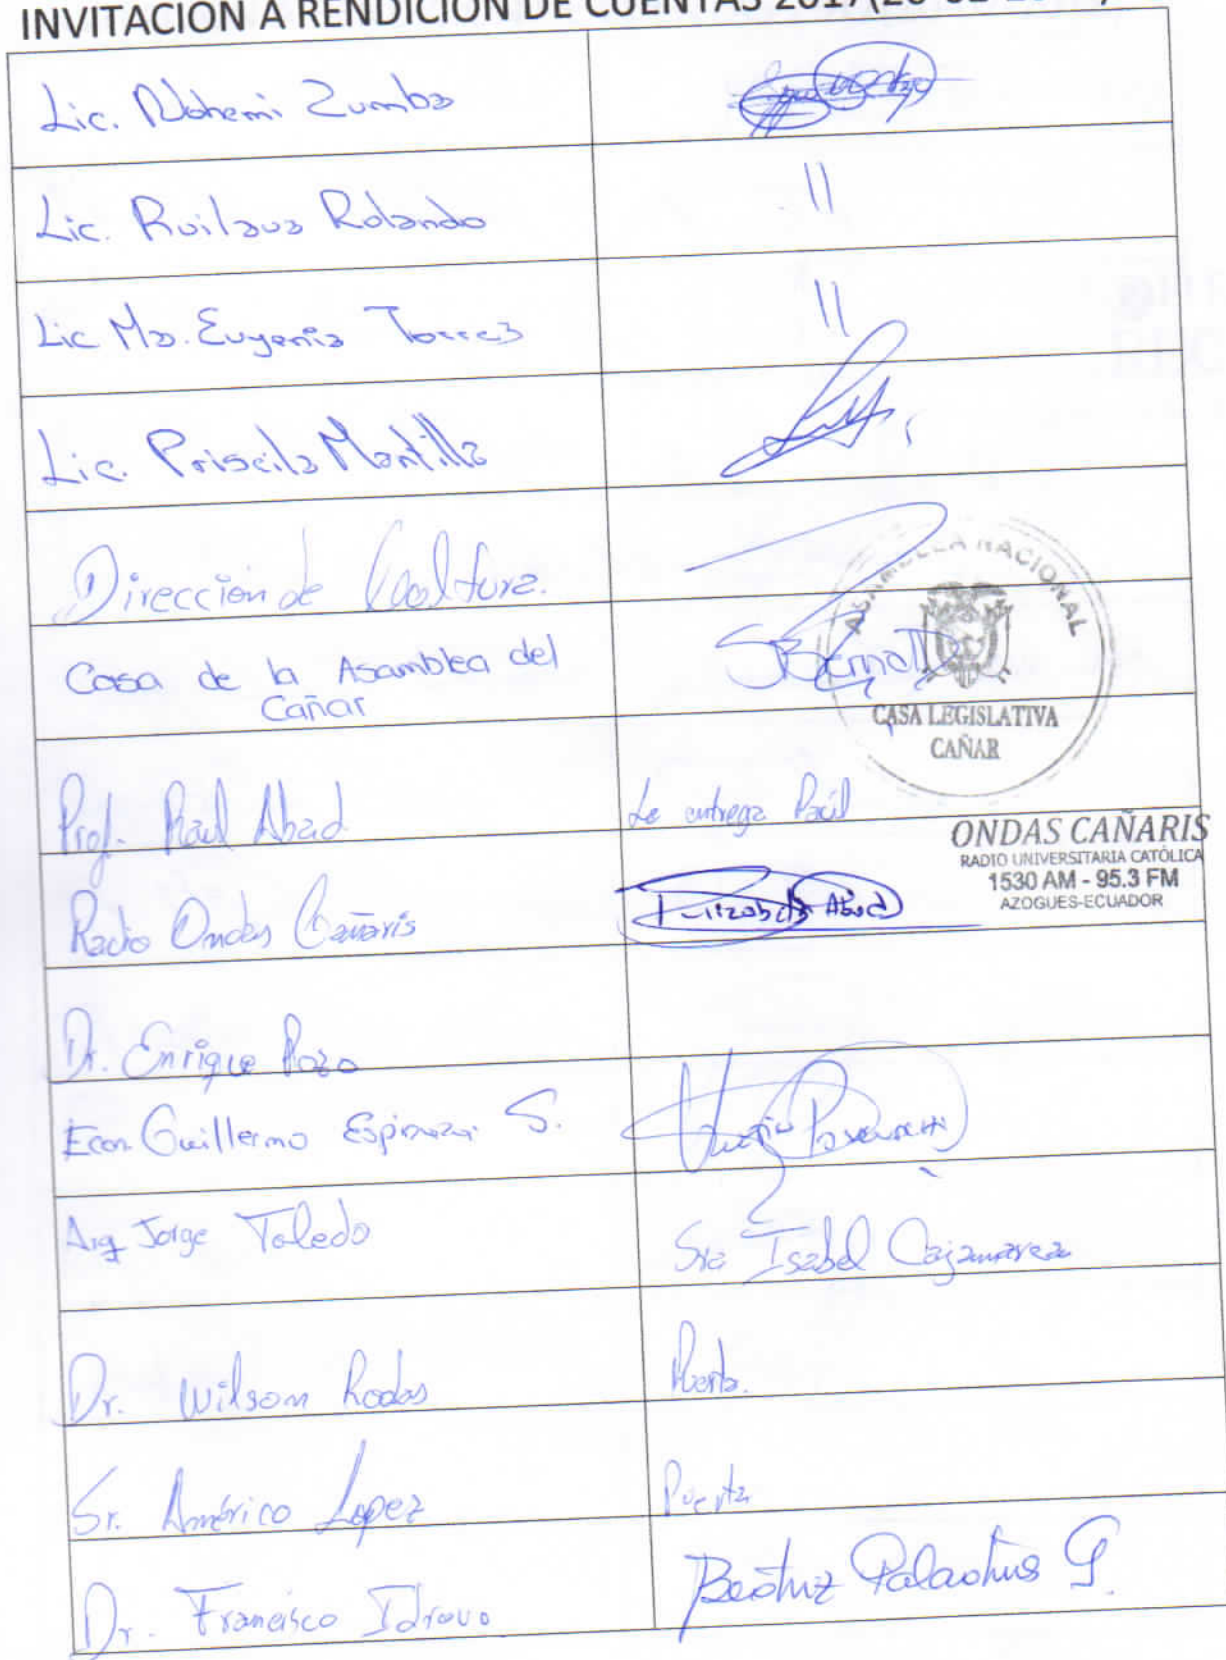 INVITACIÓN A RENDICIÓN DE CUENTAS 2017
Lic. Nohemi Zumba
Lic. Ruilova Rolando
||
Lic Ma. Eugenia Torres
||
Lic. Priscila Mantilla
Dirección de Cooltura.
ASAMBLEA NACIONAL
Casa de la Asamblea del
Cañar
SBernal
CASA LEGISLATIVA
CAÑAR
Prof. Raul Abad
Le entrega Paúl
Radio Ondas Cañaris
Elizabeth Abad
ONDAS CAÑARIS
RADIO UNIVERSITARIA CATÓLICA
1530 AM - 95.3 FM
AZOGUES-ECUADOR
Dr. Enrique Pozo
Econ Guillermo Espinoza S.
Arq Jorge Toledo
Sra Isabel Cajamarca
Dr. Wilson Rodas
Puerta.
Sr. Américo Lopez
Puerta
Dr. Francisco Idrovo
Beatriz Palacios G.